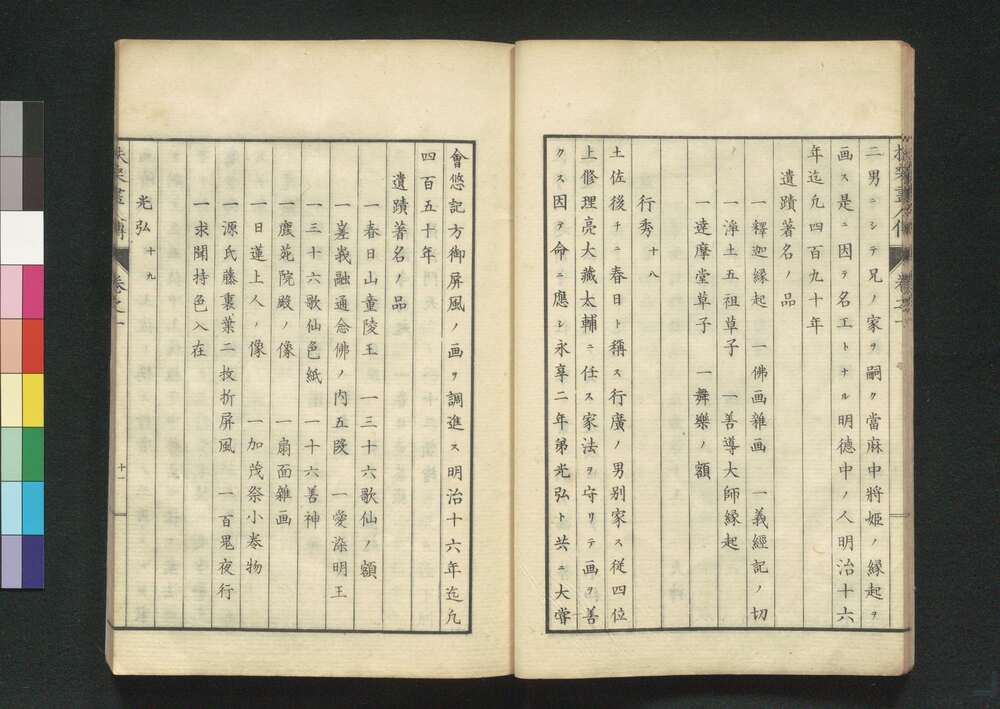 二男ニシテ兄ノ家ヲ嗣ク當麻中將姫ノ縁起ヲ
画ス是ニ因テ名工トナル明德中ノ人明治十六
年迄凢四百九十年
遺蹟著名ノ品
一釋迦縁起 一佛画雜画 一義經記ノ切
一淨土五祖草子 一善導大師縁起
一達摩堂草子 一舞樂ノ額
行秀 十八
土佐後チニ春日ト稱ス行廣ノ男別家ス從四位
上修理亮大藏太輔ニ任ス家法ヲ守リテ画ヲ善
クス因テ命ニ應シ永享二年弟光弘ト共ニ大嘗
會悠記方御屏風ノ画ヲ調進ス明治十六年迄凢
四百五十年
遺蹟著名ノ品
一春日山童陵王 一三十六歌仙ノ額
一峯峩融通念佛ノ内五段 一愛染明王
一三十六歌仙色紙 一十六善神
一鹿苑院殿ノ像 一扇面雜画
一日蓮上人ノ像 一加茂祭小巻物
一源氏藤裏葉二枚折屏風 一百鬼夜行
一求聞持色入在
光弘 十九
扶桑畫人傳 卷之一 十一